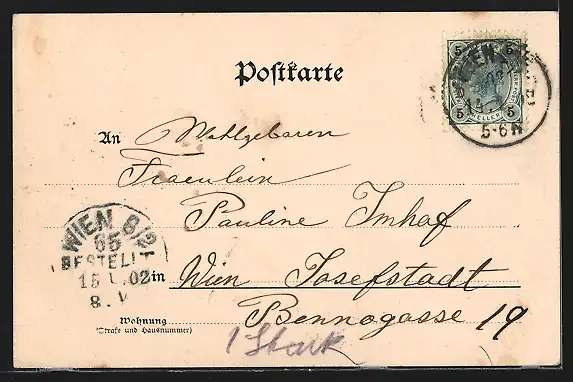 Postkarte
5 5
WIEN
HELLER
5 5
14
5-6 N
An Wohlgeboren
Fraeulein
Pauline Imhof
WIEN 8/2
65
BESTELLT
15 02
8.V
in Wien Josefstadt
Bennogasse 19
Wohnung
(Straße und Hausnummer)
1 Stock